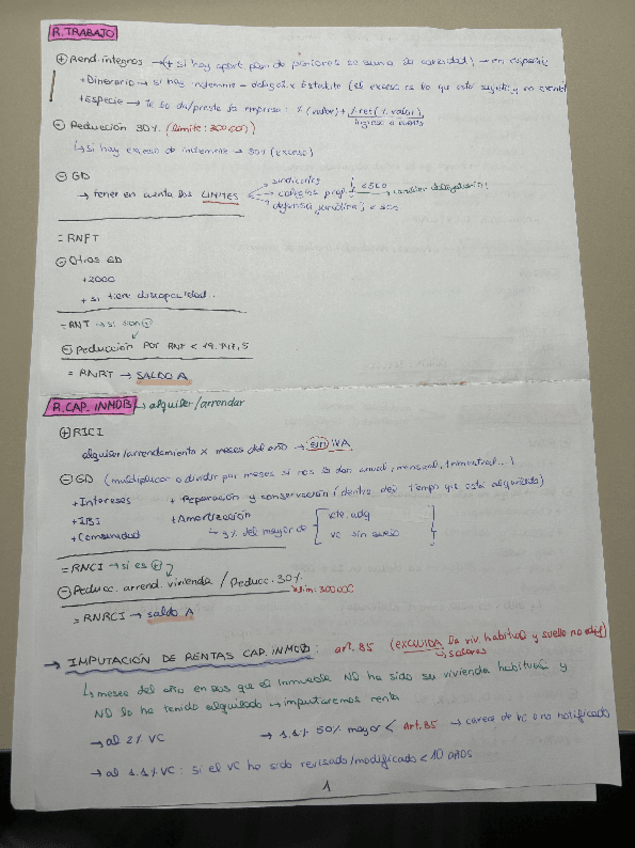 R. TRABAJO
⊕ Rend. íntegros → (+ si hay aport. plan de pensiones se suma la cantidad) → en especie
+ Dinerario → si hay indemniz - obligat. x Estatuto (el exceso es lo que está sujeto y no exento)
+ Especie → te lo da/presta la empresa: % (valor) + % ret (% valor)
ingreso a cuenta
⊖ Reducción 30% (límite: 300.000)
↳ si hay exceso de indemniz → 30% (exceso)
⊖ GD
→ tener en cuenta los LÍMITES
sindicatos
colegios prof. < 500 → carácter obligatorio!
defensa jurídica < 300
= RNPT
⊖ Otros GD
+ 2000
+ si tiene discapacidad.
= RNT → si son ⊕
⊖ Reducción por RNT < 19.747,5
= RNRT → SALDO A
R. CAP. INMOB ↳ alquiler/arrendar
⊕ RICI
alquiler/arrendamiento x meses del año → sin IVA
⊖ GD (multiplicar o dividir por meses si nos lo dan anual, mensual, trimestral...)
+ Intereses + Reparación y conservación (dentro del tiempo que está alquilado)
+ IBI + Amortización
+ Comunidad ↳ 3% del mayor de [ cte. adq
vc sin suelo ]
= RNCI → si es ⊕
⊖ Reducc. arrend. vivienda / Reducc. 30%
lim: 300.000
= RNRCI → saldo A
→ IMPUTACIÓN DE RENTAS CAP. INMOB: art. 85 (EXCLUIDA la viv. habitual y suelo no edif)
↳ solares
↳ meses del año en los que el inmueble NO ha sido su vivienda habitual y
NO lo ha tenido alquilado → imputaremos renta
→ al 2% VC → 1.1% 50% mayor < art. 85 → carece de VC o no notificado
→ al 1.1% VC: si el VC ha sido revisado/modificado < 10 años
1